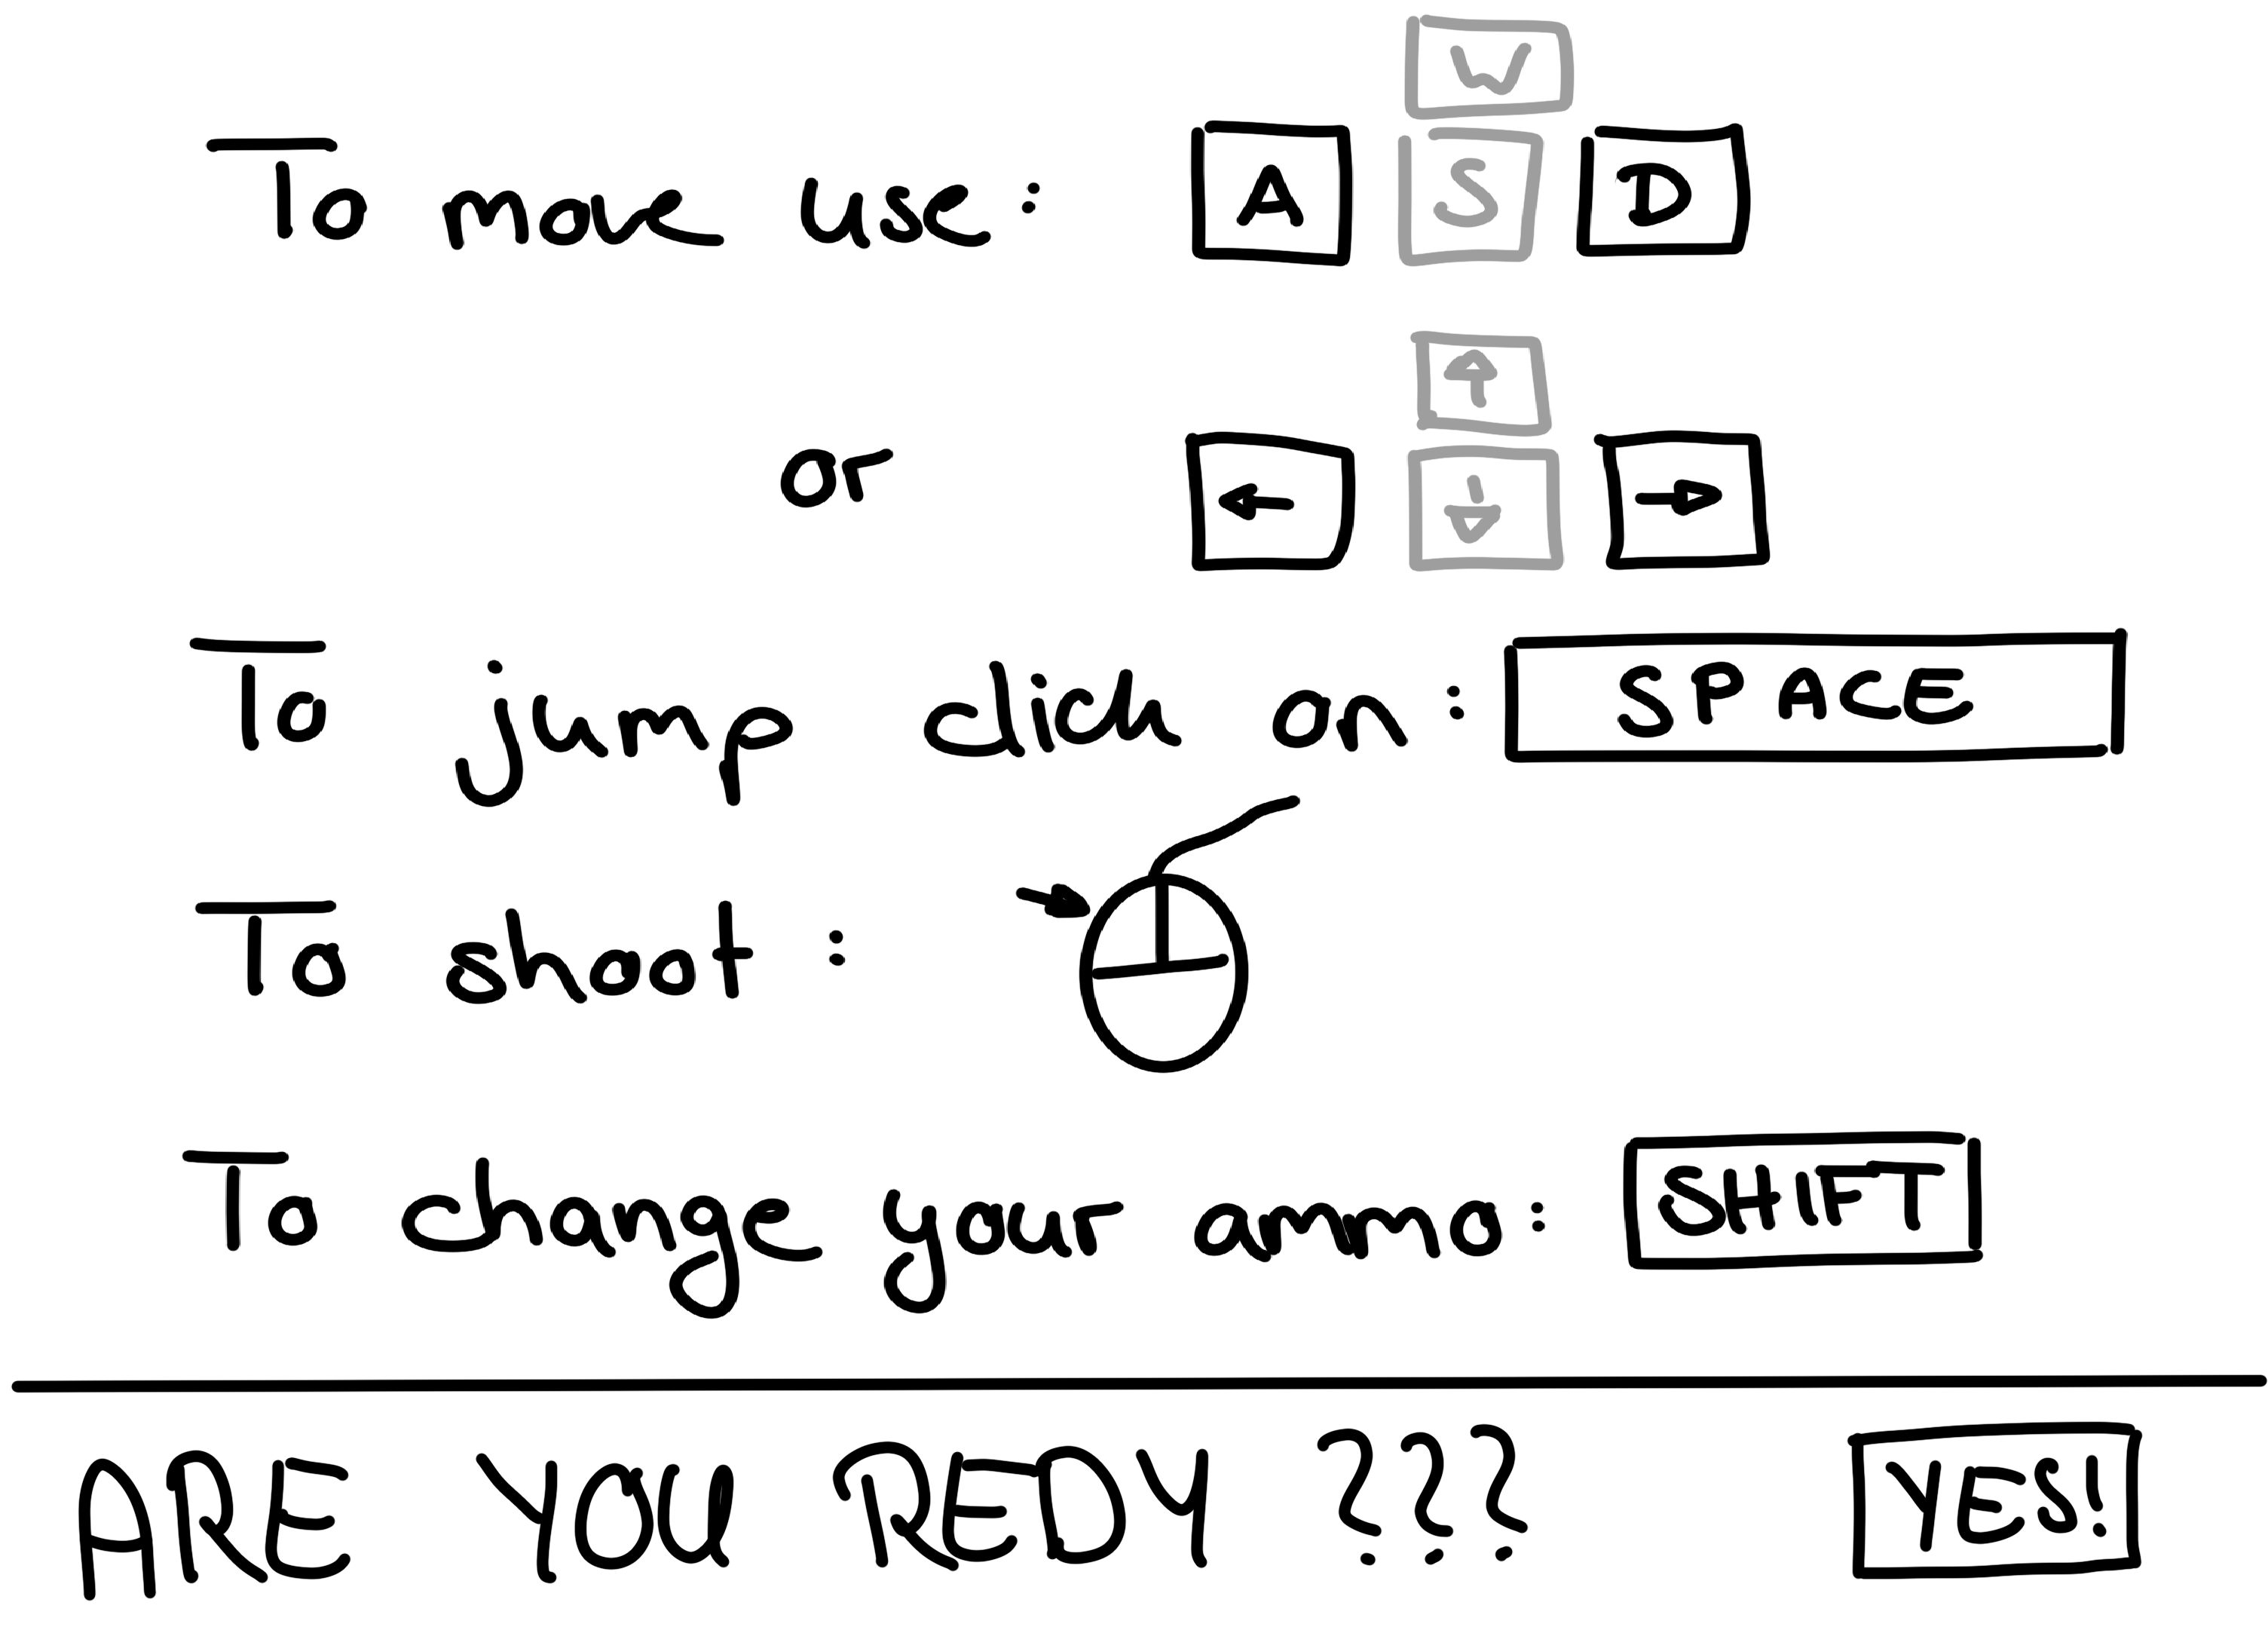 W
To move use: A S D
or
To jump click on: SPACE
To shoot:
To change your ammo: SHIFT
ARE YOU REDY ??? YES!